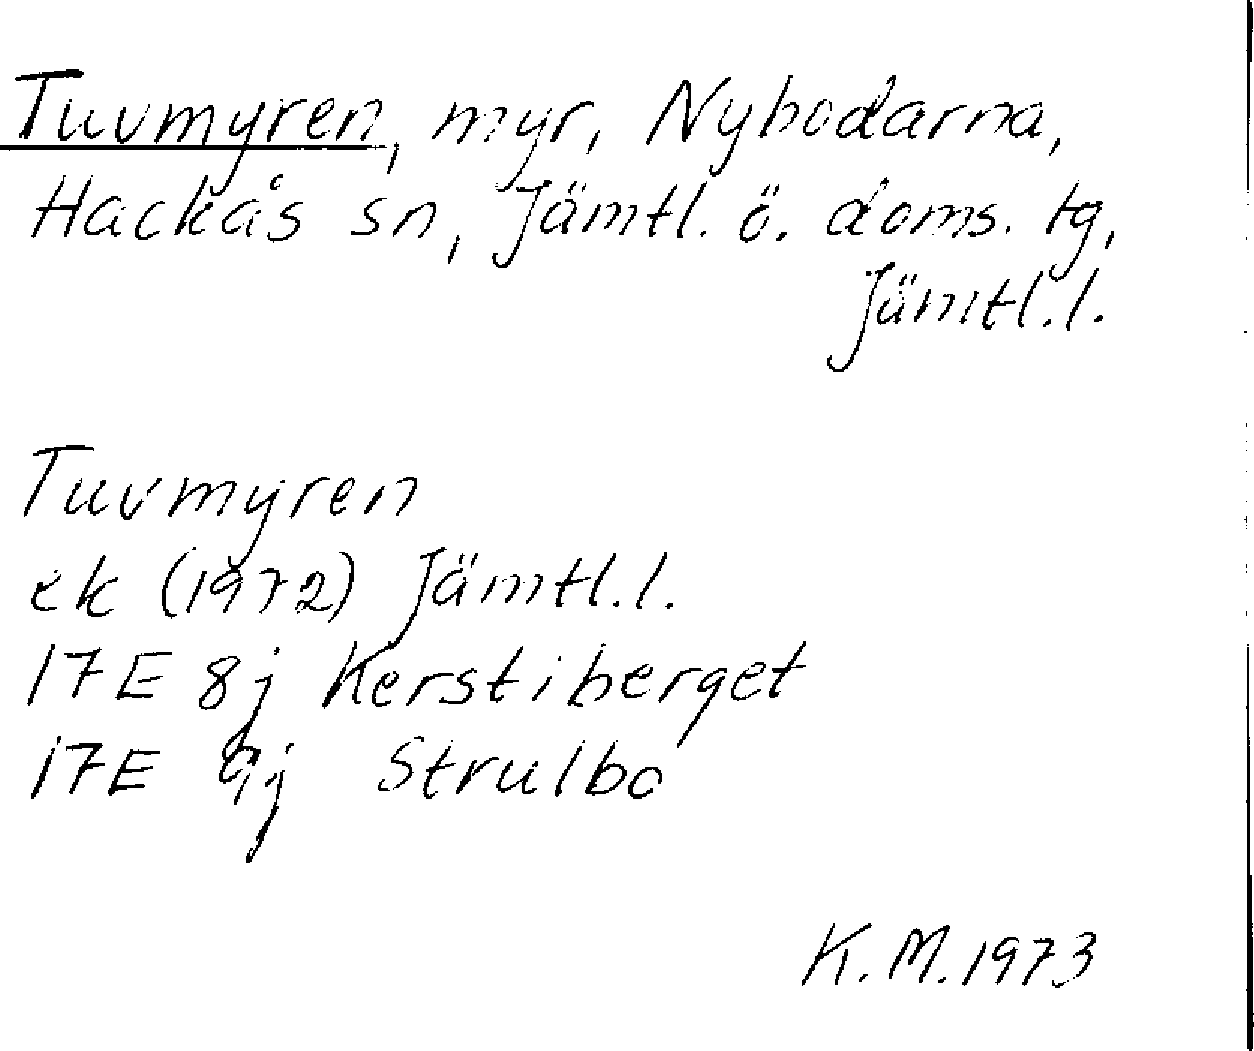 Tuvmyren, myr, Nybodarna,
Hackås sn, Jämtl. ö. doms. tg,
Jämtl.l.
Tuvmyren
ek (1972) Jämtl.l.
17E 8j Kerstiberget
17E 9j Strulbo
K.M.1973